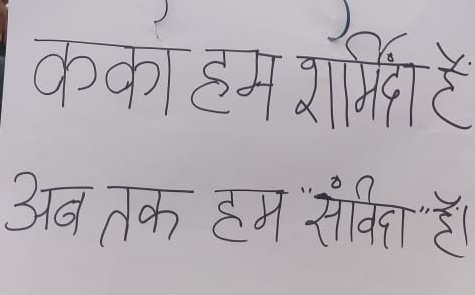 कका हम शर्मिंदा हैं
अब तक हम "संविदा" हैं।